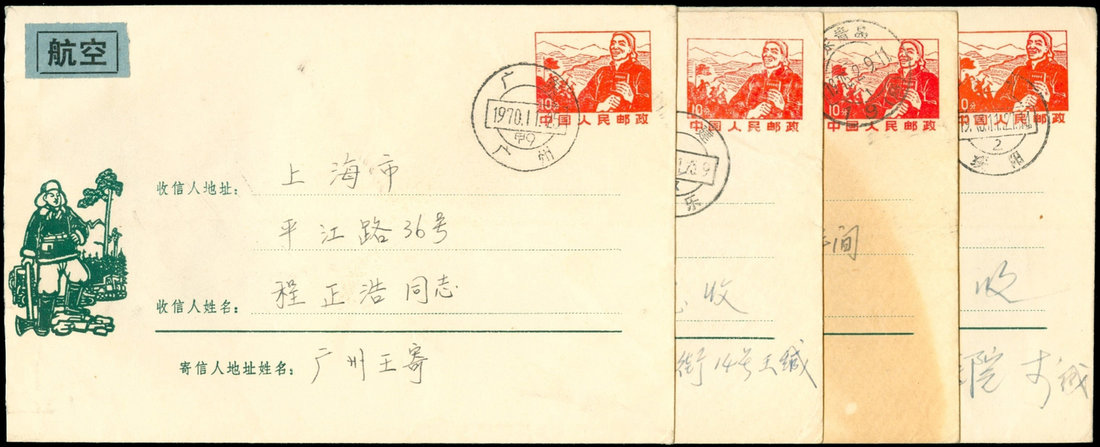 航空
10分
中国人民邮政
广 东
1970.11.25
广 州
收信人地址:
上海市
平江路36号
收信人姓名:
程正浩同志
寄信人地址姓名:
广州王寄
10分
中国人民邮政
乐
收
街14号王缄
10分
中国人民邮政
间
0分
中国人民邮政
2
收
院